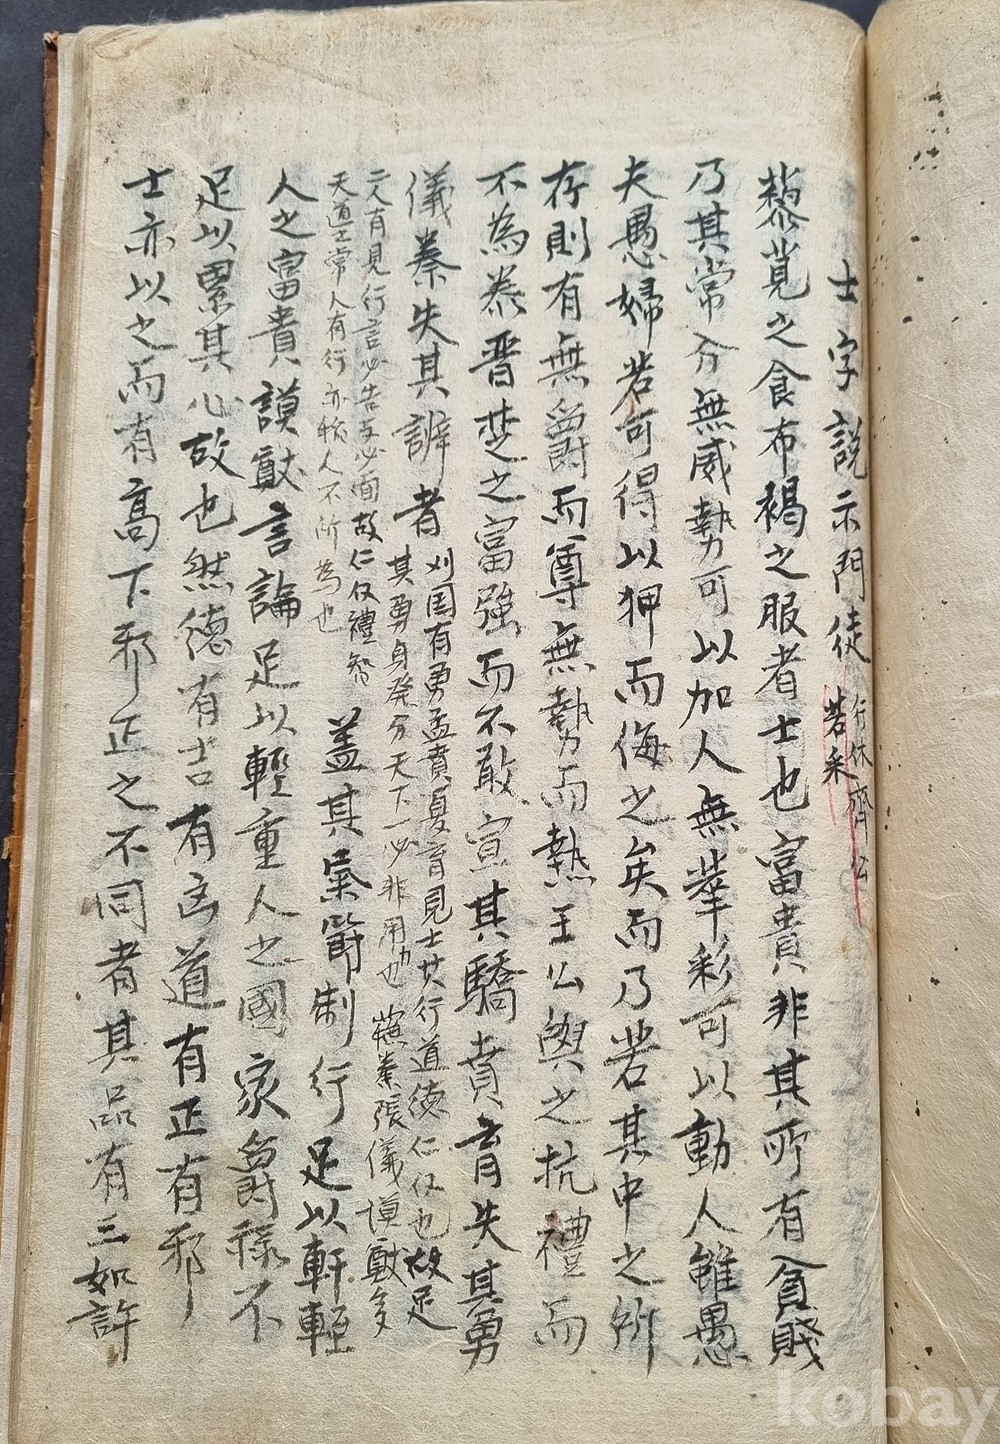 士字說示門徒
行休齊公
若采
藜莧之食布褐之服者士也富貴非其所有貧賤
乃其常分無威勢可以加人無華彩可以動人雖愚
夫愚婦若可得以狎而侮之矣而乃若其中之所
存則有無爵而尊無勢而熱王公與之抗禮而
不為泰晋楚之富強而不敢宣其驕賁育失其勇
儀秦失其辨者
刈国有勇孟賁夏育見士其行道德仁仅也故足
其勇身癹分天下一必非用力也 蘇秦張儀謨猷多
二人有見行言必告互必面故仁仅禮智
天道士常人有行亦称人不所為也
蓋其稟爵制行足以軒輊
人之富貴謨猷言論足以輕重人之國家爵祿不
足以累其心故也然德有吉有凶道有正有邪
士亦以之而有高下邪正之不同者其品有三如許
kobay